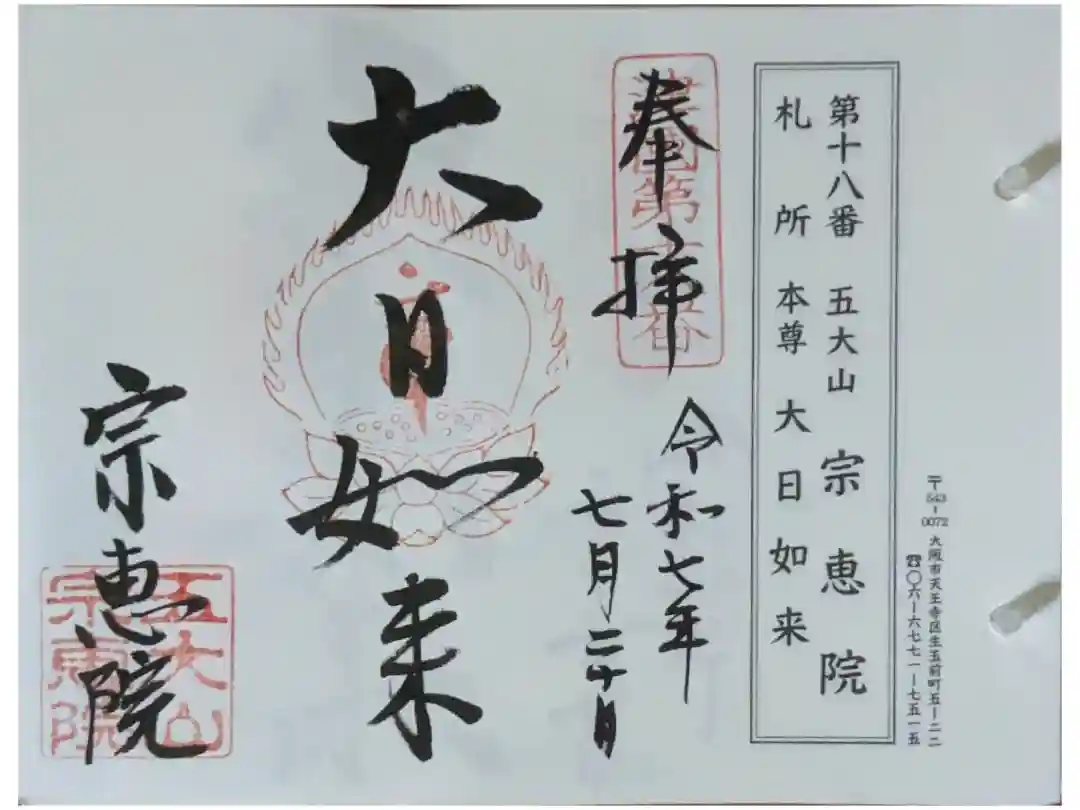 〒543-0072 大阪市天王寺区生玉前町五ー二二
☎〇六ー六七七一ー七五一五
第十八番 五大山 宗恵院
札所本尊 大日如来
奉拝
令和七年
七月二十日
大日如来
宗恵院
五大山
宗恵院